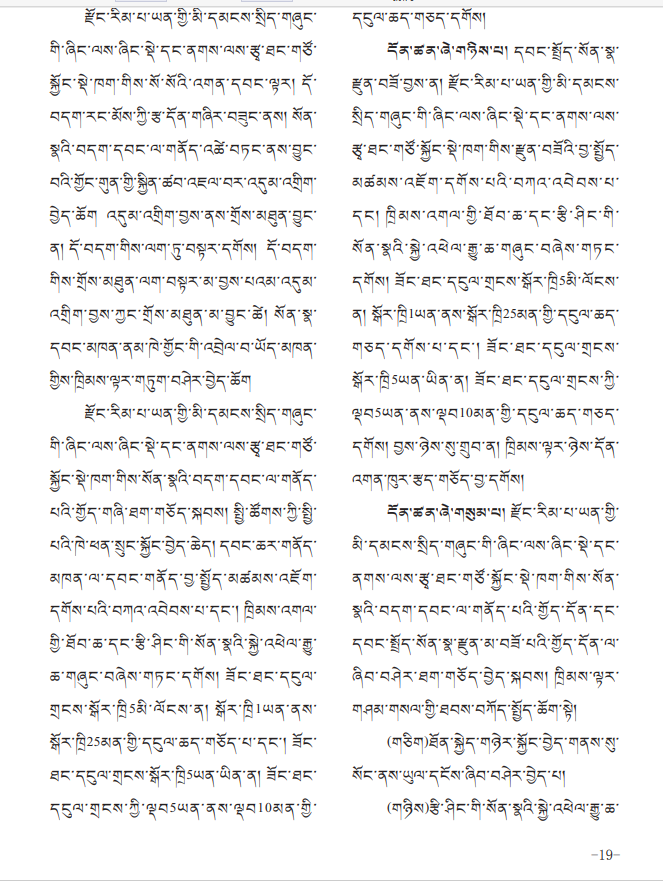 རྫོང་རིམ་པ་ཡན་གྱི་མི་དམངས་སྲིད་གཞུང་
གི་ཞིང་ལས་ཞིང་སྡེ་དང་ནགས་ལས་རྩྭ་ཐང་གཙོ་
སྐྱོང་སྡེ་ཁག་གིས་སོ་སོའི་འགན་དབང་ལྟར། དོ་
བདག་རང་མོས་ཀྱི་རྩ་དོན་གཞིར་བཟུང་ནས། སོན་
སྣའི་བདག་དབང་ལ་གནོད་འཚེ་བཏང་ནས་བྱུང་
བའི་གྱོང་གུན་གྱི་སྐྱིན་ཚབ་འཇལ་བར་འདུམ་འགྲིག་
བྱེད་ཆོག །འདུམ་འགྲིག་བྱས་ནས་གྲོས་མཐུན་བྱུང་
ན། དོ་བདག་གིས་ལག་ཏུ་བསྟར་དགོས། དོ་བདག་
གིས་གྲོས་མཐུན་ལག་བསྟར་མ་བྱས་པའམ་འདུམ་
འགྲིག་བྱས་ཀྱང་གྲོས་མཐུན་མ་བྱུང་ཚེ། སོན་སྣ་
དབང་མཁན་ནམ་ཁེ་གྱོང་གི་འབྲེལ་བ་ཡོད་མཁན་
གྱིས་ཁྲིམས་ལྟར་གཏུག་བཤེར་བྱེད་ཆོག
རྫོང་རིམ་པ་ཡན་གྱི་མི་དམངས་སྲིད་གཞུང་
གི་ཞིང་ལས་ཞིང་སྡེ་དང་ནགས་ལས་རྩྭ་ཐང་གཙོ་
སྐྱོང་སྡེ་ཁག་གིས་སོན་སྣའི་བདག་དབང་ལ་གནོད་
པའི་གྱོད་གཞི་ཐག་གཅོད་སྐབས། སྤྱི་ཚོགས་ཀྱི་སྤྱི་
པའི་ཁེ་ཕན་སྲུང་སྐྱོང་བྱེད་ཆེད། དབང་ཆར་གནོད་
མཁན་ལ་དབང་གནོད་བྱ་སྤྱོད་མཚམས་འཇོག་
དགོས་པའི་བཀའ་འབེབས་པ་དང་། ཁྲིམས་འགལ་
གྱི་ཐོབ་ཆ་དང་རྩི་ཤིང་གི་སོན་སྣའི་སྐྱེ་འཕེལ་རྒྱུ་
ཆ་གཞུང་བཞེས་གཏང་དགོས། ཟོང་ཐང་དངུལ་
གྲངས་སྒོར་ཁྲི5མི་ལོངས་ན། སྒོར་ཁྲི1ཡན་ནས་
སྒོར་ཁྲི25མན་གྱི་དངུལ་ཆད་གཅོད་པ་དང་། ཟོང་
ཐང་དངུལ་གྲངས་སྒོར་ཁྲི5ཡན་ཡིན་ན། ཟོང་ཐང་
དངུལ་གྲངས་ཀྱི་ལྡབ5ཡན་ནས་ལྡབ10མན་གྱི་
དངུལ་ཆད་གཅད་དགོས།
དོན་ཚན་ཞེ་གཉིས་པ། དབང་སྤྲོད་སོན་སྣ་
རྫུན་བཟོ་བྱས་ན། རྫོང་རིམ་པ་ཡན་གྱི་མི་དམངས་
སྲིད་གཞུང་གི་ཞིང་ལས་ཞིང་སྡེ་དང་ནགས་ལས་
རྩྭ་ཐང་གཙོ་སྐྱོང་སྡེ་ཁག་གིས་རྫུན་བཟོའི་བྱ་སྤྱོད་
མཚམས་འཇོག་དགོས་པའི་བཀའ་འབེབས་པ་
དང། ཁྲིམས་འགལ་གྱི་ཐོབ་ཆ་དང་རྩི་ཤིང་གི་
སོན་སྣའི་སྐྱེ་འཕེལ་རྒྱུ་ཆ་གཞུང་བཞེས་གཏང་
དགོས། ཟོང་ཐང་དངུལ་གྲངས་སྒོར་ཁྲི5མི་ལོངས་
ན། སྒོར་ཁྲི1ཡན་ནས་སྒོར་ཁྲི25མན་གྱི་དངུལ་ཆད་
གཅད་དགོས་པ་དང་། ཟོང་ཐང་དངུལ་གྲངས་
སྒོར་ཁྲི5ཡན་ཡིན་ན། ཟོང་ཐང་དངུལ་གྲངས་ཀྱི་
ལྡབ5ཡན་ནས་ལྡབ10མན་གྱི་དངུལ་ཆད་གཅད་
དགོས། བྱས་ཉེས་སུ་གྲུབ་ན། ཁྲིམས་ལྟར་ཉེས་དོན་
འགན་ཁུར་རྩད་གཅོད་བྱ་དགོས།
དོན་ཚན་ཞེ་གསུམ་པ། རྫོང་རིམ་པ་ཡན་གྱི་
མི་དམངས་སྲིད་གཞུང་གི་ཞིང་ལས་ཞིང་སྡེ་དང་
ནགས་ལས་རྩྭ་ཐང་གཙོ་སྐྱོང་སྡེ་ཁག་གིས་སོན་
སྣའི་བདག་དབང་ལ་གནོད་པའི་གྱོད་དོན་དང་
དབང་སྤྲོད་སོན་སྣ་རྫུན་མ་བཟོ་པའི་གྱོད་དོན་ལ་
ཞིབ་བཤེར་ཐག་གཅོད་བྱེད་སྐབས། ཁྲིམས་ལྟར་
གཤམ་གསལ་གྱི་ཐབས་བཀོད་སྤྱོད་ཆོག་སྟེ།
(གཅིག)ཐོན་སྐྱེད་གཉེར་སྐྱོང་བྱེད་གནས་སུ་
སོང་ནས་ཡུལ་དངོས་ཞིབ་བཤེར་བྱེད་པ།
(གཉིས)རྩི་ཤིང་གི་སོན་སྣའི་སྐྱེ་འཕེལ་རྒྱུ་ཆ་
-19-